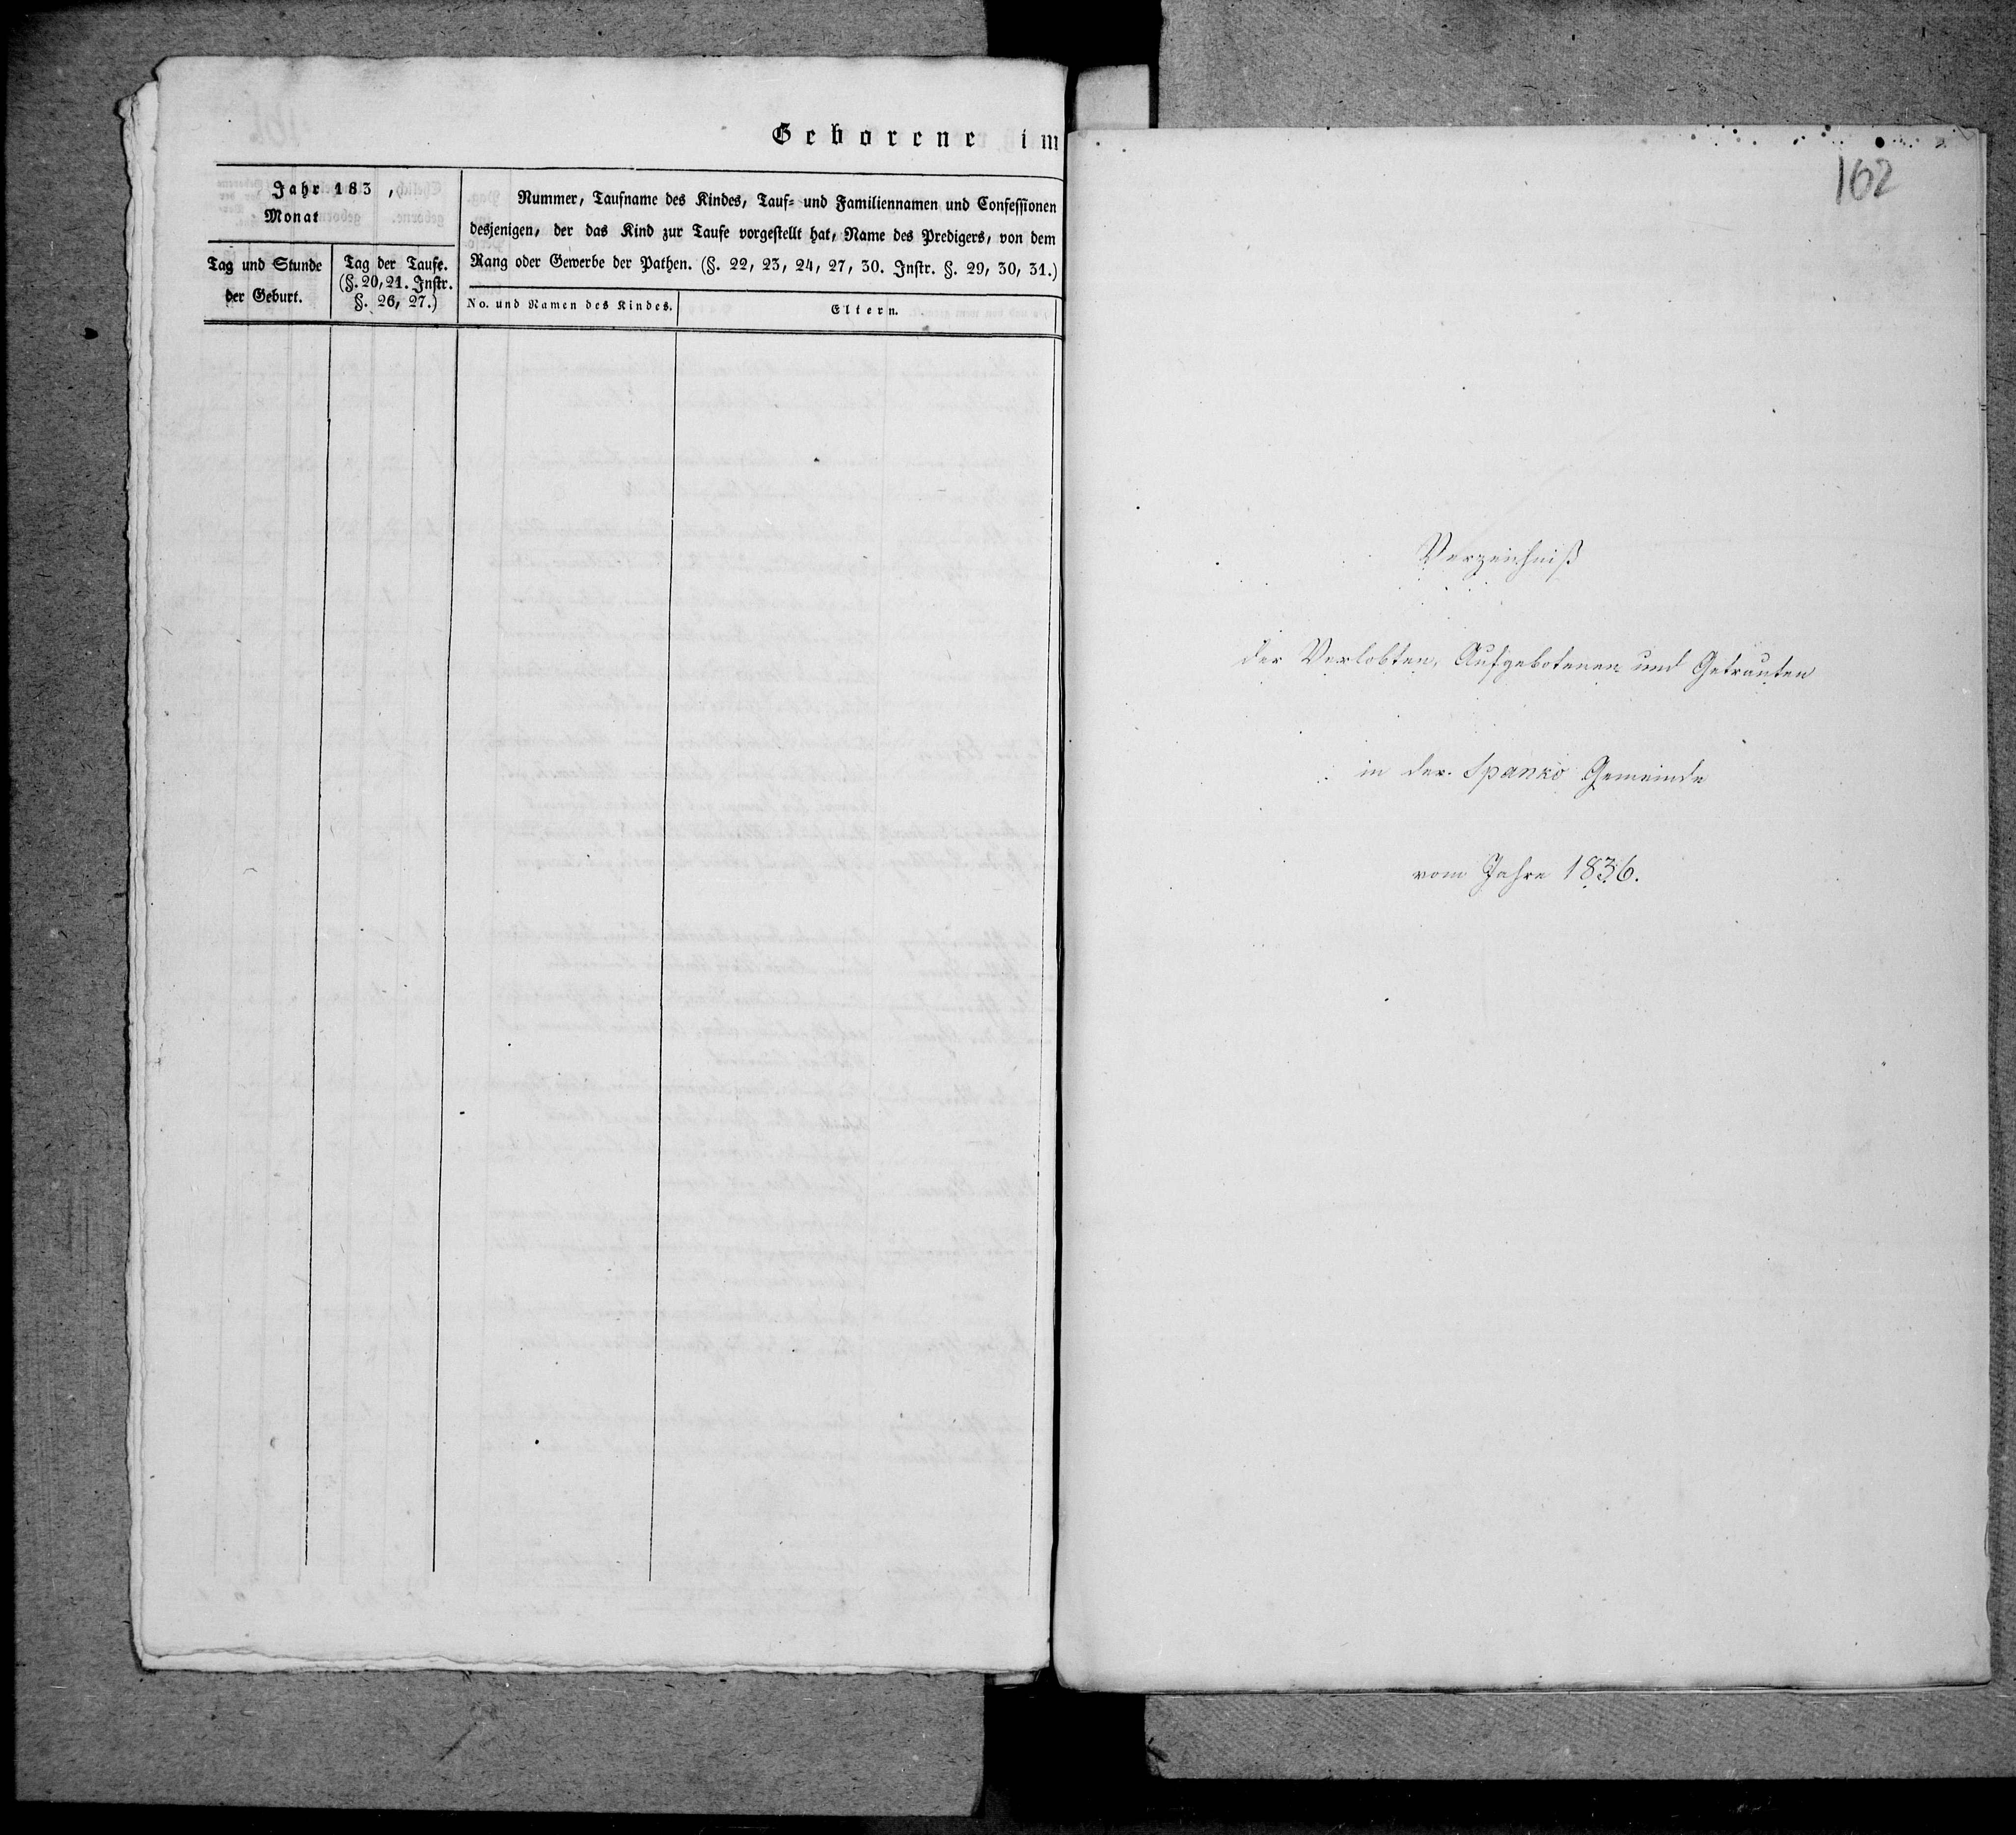 Geborene im
Jahr 183 ,
Monat
Tag und Stunde
der Geburt.
Tag der Taufe.
(§. 20, 21. Instr.
§. 26, 27.)
Nummer, Taufname des Kindes, Tauf- und Familiennamen und Confessionen
desjenigen, der das Kind zur Taufe vorgestellt hat, Name des Predigers, von dem
Rang oder Gewerbe der Pathen. (§. 22, 23, 24, 27, 30. Instr. §. 29, 30, 31.)
No. und Namen des Kindes.
Eltern.
162
Verzeichniß
der Verlobten, Aufgebotenen und Getrauten
in der Spanko Gemeinde
vom Jahre 1836.